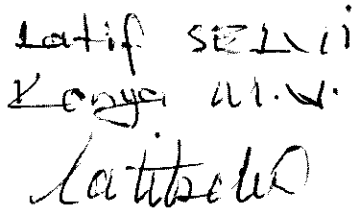 Latif SELVİ
Konya M.V.